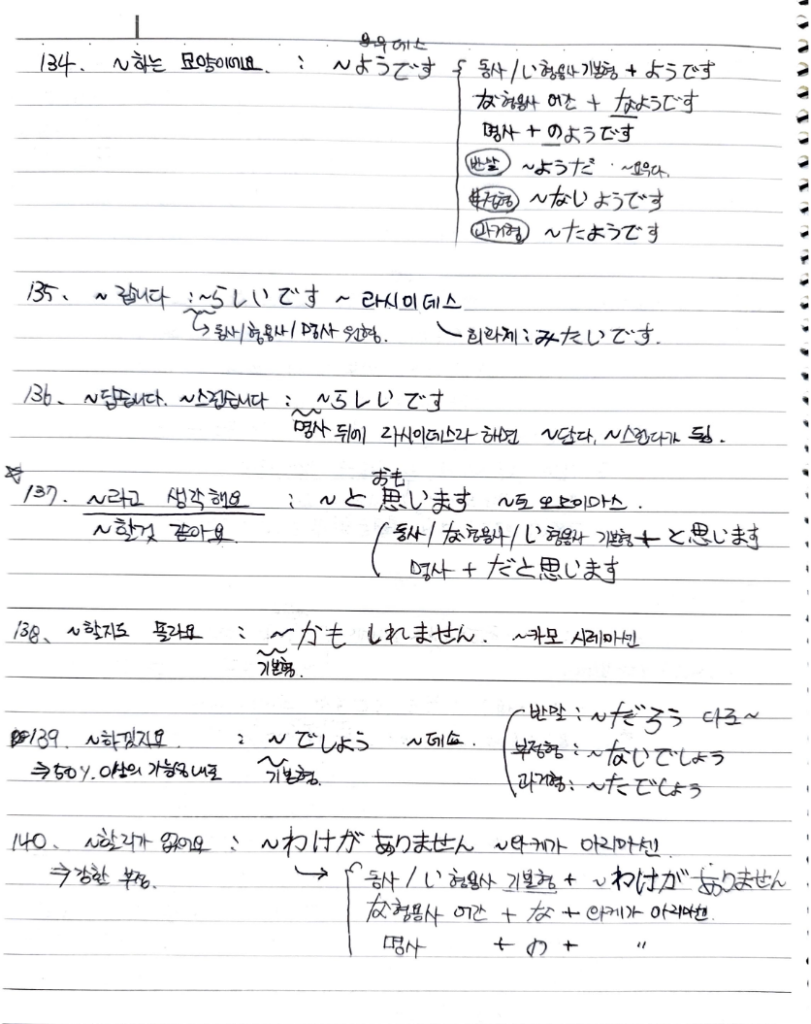 요우데스
134. ~하는 모양이에요. : ~ようです 동사/い형용사 기본형 + ようです
な형용사 어간 + なようです
명사 + のようです
반말 ~ようだ ~요우다.
부정형 ~ないようです
과거형 ~たようです
135. ~랍니다 : ~らしいです ~ 라시이데스
↳ 동사/형용사/명사 원형. 회화체 : みたいです.
136. ~답습니다. ~스럽습니다 : ~らしいです
명사 뒤에 라시이데스라 하면 ~답다, ~스럽다가 됨.
おも
☆137. ~라고 생각해요 : ~と 思います ~토 오모이마스.
~할것 같아요. 동사/な형용사/い형용사 기본형 + と思います
명사 + だと思います
138. ~할지도 몰라요 : ~かも しれません. ~카모 시레마센
기본형.
139. ~하겠지요 : ~でしょう ~데쇼. 반말 : ~だろう 다로~
⇒50%이상의 가능성내포 기본형. 부정형 : ~ないでしょう
과거형 : ~たでしょう
140. ~할리가 없어요 : ~わけが ありません ~와케가 아리마센
⇒강한 부정. → 동사/い형용사 기본형 + ~わけが ありません
な형용사 어간 + な + 와케가 아리마센
명사 + の + 〃